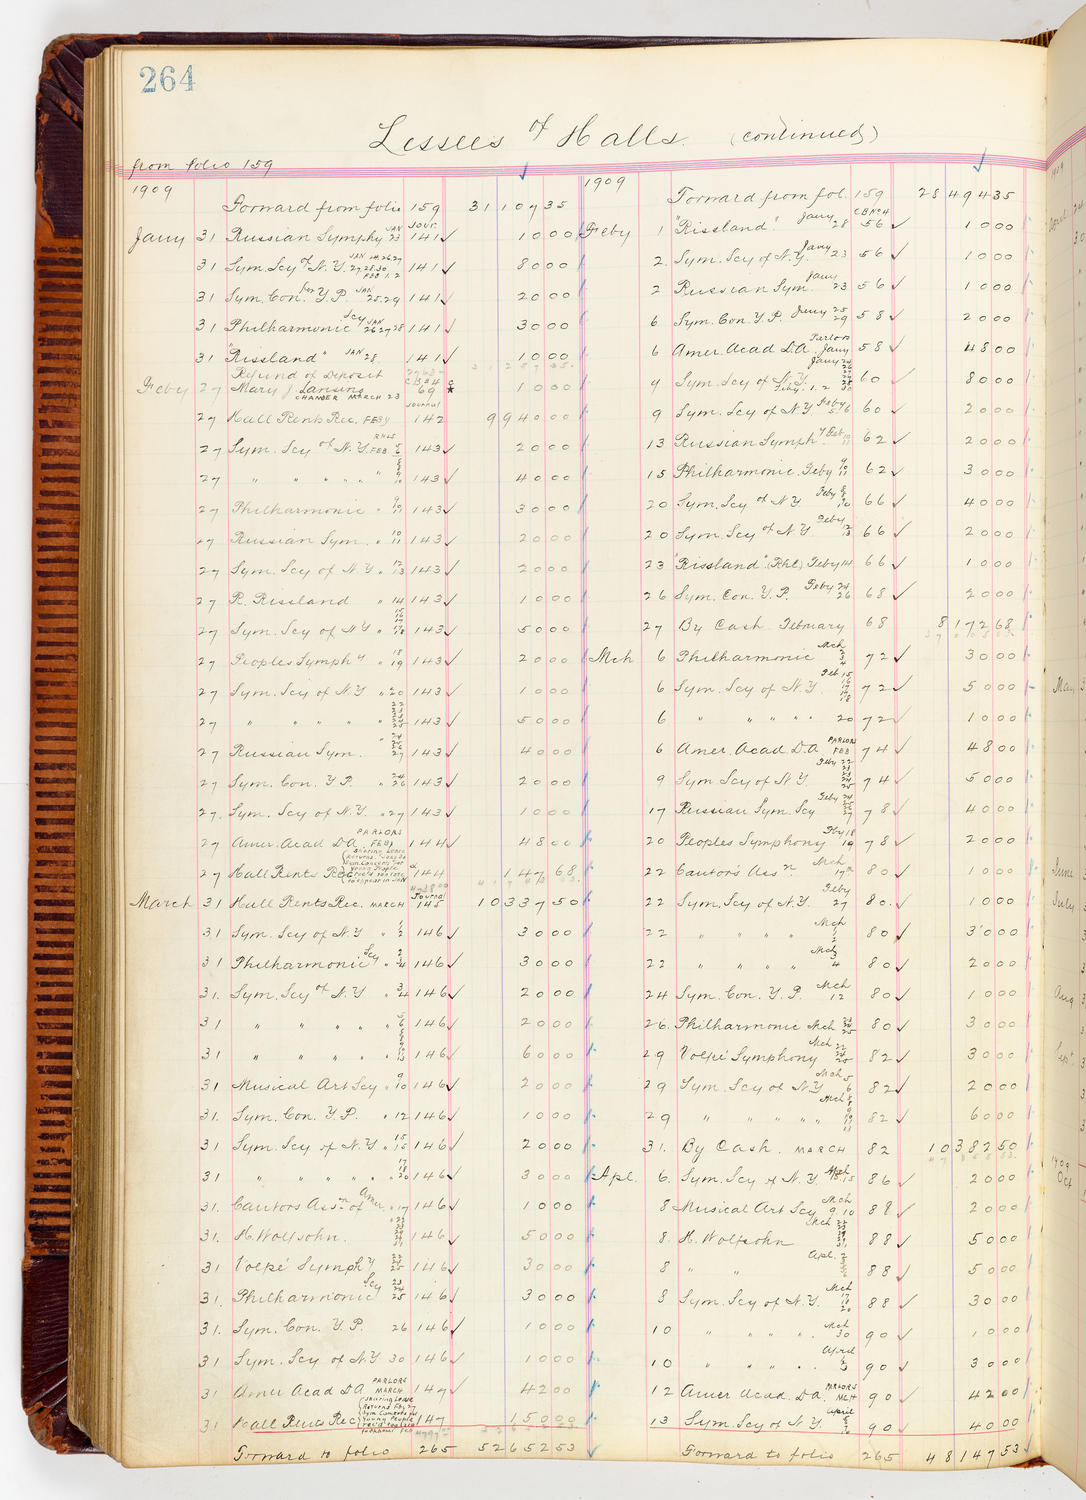 264
Lessees of Halls. (continued)
from folio 159
1909
Forward from folio 159 31 107 35
Jour.
Jany 31 Russian Symphy JAN 23 141 ✓ 10 00
31 Sym. Scy of N.Y. 141 ✓ 80 00
31 Sym. Con. for Y.P. JAN 25.29 141 ✓ 20 00
31 Philharmonic Scy JAN 26 27 28 141 ✓ 30 00
31 "Rissland" JAN 28. 141 ✓ 10 00
Refund of Deposit
Feby 27 Mary J. Lansing CB#4 69 10 00
CHAMBER MARCH 23
Journal
27 Hall Rents Rec. FEBY 142 9940 00
27 Sym. Scy of N.Y. FEB 5 6 143 ✓ 20 00
27 " " " " " 143 ✓ 40 00
27 Philharmonic " 143 ✓ 30 00
27 Russian Sym. " 10 11 143 ✓ 20 00
27 Sym. Scy of N.Y. " 12 13 143 ✓ 20 00
27 R. Rissland " 14 143 ✓ 10 00
27 Sym. Scy of N.Y. " 143 ✓ 50 00
27 Peoples Symphy " 18 19 143 ✓ 20 00
27 Sym. Scy of N.Y. " 20 143 ✓ 10 00
27 " " " " 143 ✓ 50 00
27 Russian Sym. 143 ✓ 40 00
27 Sym. Con. Y.P. " 24 26 143 ✓ 20 00
27. Sym. Scy of N.Y. " 27 143 ✓ 10 00
27 Amer. Acad D.A. PARLORS FEBY 144 ✓ 48 00
27 Hall Rents Rec 144 147 68
Journal
March 31 Hall Rents Rec. MARCH 145 10 337 50
31 Sym. Scy of N.Y. " 1 2 146 ✓ 30 00
31 Philharmonic Scy " 146 ✓ 30 00
31. Sym. Scy of N.Y. " 3 4 146 ✓ 20 00
31 " " " " " 5 6 146 ✓ 20 00
31 " " " " " 146 ✓ 60 00
31 Musical Art Scy " 9 10 146 ✓ 20 00
31. Sym. Con. Y.P. " 12 146 ✓ 10 00
31 Sym. Scy of N.Y. 146 ✓ 20 00
31 " " " " " 17 18 20 146 ✓ 30 00
31. Cantors Assn of Amer. " 17 146 ✓ 10 00
31. H. Wolfsohn. 146 ✓ 50 00
31 Volpé Symphy 146 ✓ 30 00
31. Philharmonic Scy 23 24 25 146 ✓ 30 00
31. Sym. Con. Y.P. 26 146 ✓ 10 00
31 Sym. Scy of N.Y. 30 146 ✓ 10 00
31 Amer Acad D.A. PARLORS MARCH 147 ✓ 42 00
31 Hall Rents Rec 147 150 00
Forward to folio 265 52 652 53
1909
Forward from fol. 159 28 494 35
CB No 4
Feby 1 "Rissland" Jany 28 56 ✓ 10 00
2. Sym. Scy of N.Y. Jany 56 ✓ 10 00
2 Russian Sym. Jany 23 56 ✓ 10 00
6 Sym. Con. Y.P. Jany 25 29 58 ✓ 20 00
6 Amer. Acad D.A. Parlors Jany 58 ✓ 48 00
9 Sym. Scy of N.Y. Feby. 1. 2 60 ✓ 80 00
9 Sym. Scy of N.Y. Feby 5.6 60 ✓ 20 00
13 Russian Symphy Feb 62 ✓ 20 00
15 Philharmonic. Feby 62 ✓ 30 00
20 Sym. Scy of N.Y. Feby 66 ✓ 40 00
20 Sym. Scy of N.Y. Feby 12 13 66 ✓ 20 00
23 "Rissland" (Rhl) Feby 14 66 ✓ 10 00
26 Sym. Con. Y.P. Feby 24 26 68 ✓ 20 00
27 By Cash. February 68 8 172 68
Mch 6 Philharmonic Mch 72 ✓ 30 00
6 Sym. Scy of N.Y. Feb 15 16 17 18 72 ✓ 50 00
6 " " " " 20 72 ✓ 10 00
6 Amer. Acad. D.A. PARLORS FEB 74 ✓ 48 00
9 Sym Scy of N.Y. Feby 74 ✓ 50 00
17 Russian Sym. Scy Feby 78 ✓ 40 00
20 Peoples Symphony Fby 18 19 78 ✓ 20 00
22 Cantors Assn. Mch 17th 80 ✓ 10 00
22 Sym. Scy of N.Y. Feby 27 80. ✓ 10 00
22 " " " " Mch 80 ✓ 30 00
22 " " " " Mch 3 4 80 ✓ 20 00
24 Sym. Con. Y.P. Mch 12 80 ✓ 10 00
26. Philharmonic Mch 23 24 25 80 ✓ 30 00
29 Volpé Symphony Mch 82 ✓ 30 00
29 Sym. Scy of N.Y. Mch 5 6 82 ✓ 20 00
29 " " " " " Mch 82 ✓ 60 00
31. By Cash. MARCH 82 10 382 50
Apl. 6. Sym. Scy of N.Y. Mch 86 ✓ 20 00
8 Musical Art Scy Mch 9. 10 88 ✓ 20 00
8. H. Wolfsohn Mch 88 ✓ 50 00
8 " " Apl. 88 ✓ 50 00
8 Sym. Scy of N.Y. Mch 17 18 20 88 ✓ 30 00
10 " " " " . Mch 30 90 ✓ 10 00
10 " " " " . April 90 ✓ 30 00
12 Amer Acad. D.A. PARLORS MCH 90 ✓ 42 00
13 Sym. Scy of N.Y. April 90 ✓ 40 00
Forward to folio 265 48 147 53